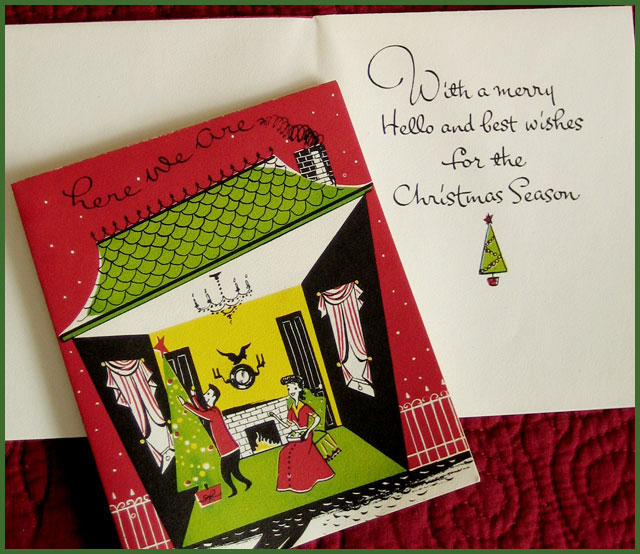 here we are
With a merry
Hello and best wishes
for the
Christmas Season